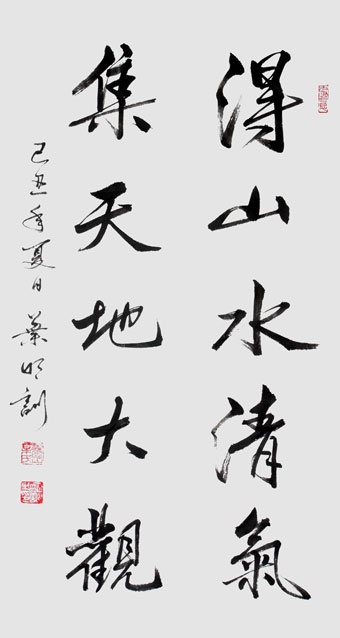 得山水清氣
集天地大觀
己丑年夏日 葉明訓